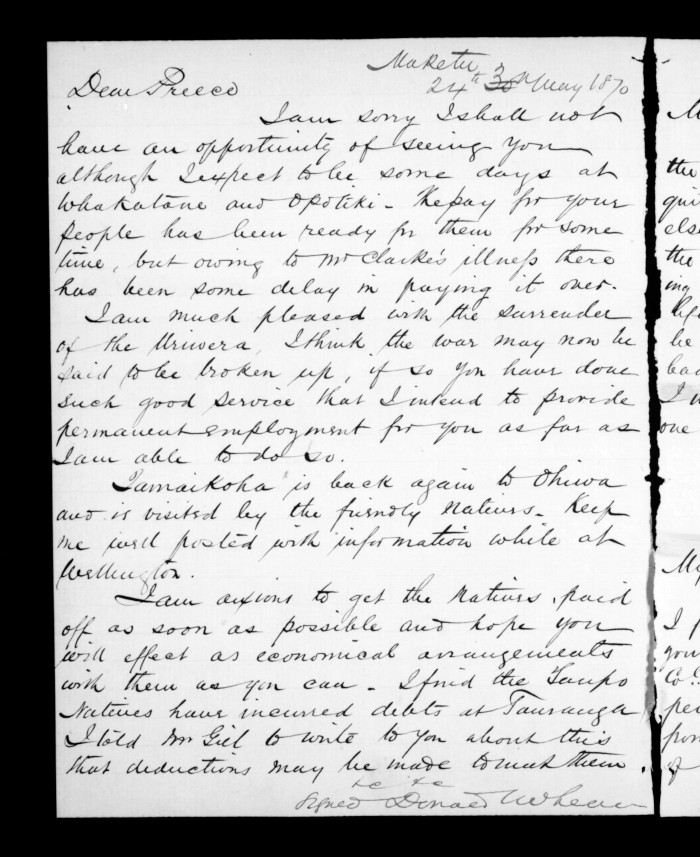 Maketu
24th 30th May 1870
Dear Preece
I am sorry I shall not
have an opportunity of seeing you
although I expect to be some days at
Whakatane and Opotiki - The pay for your
people has been ready for them for some
time, but owing to Mr Clarke's illness there
has been some delay in paying it over.
I am much pleased with the surrender
of the Uriwera, I think the war may now be
said to be broken up, if so you have done
such good service that I intend to provide
permanent employment for you as far as
I am able to do so.
Tamaikoha is back again to Ohiwa
and is visited by the friendly Natives. Keep
me well posted with information while at
Wellington.
I am anxious to get the Natives paid
off as soon as possible and hope you
will effect as economical arrangements
with them as you can - I find the Taupo
Natives have incurred debts at Tauranga
I told Mr Gill to write to you about this
that deductions may be made to meet them.
&c &c
Signed Donald McLean
the
qui
else
the
ing
he
bac
I
one
I
your
Co
per
from
of